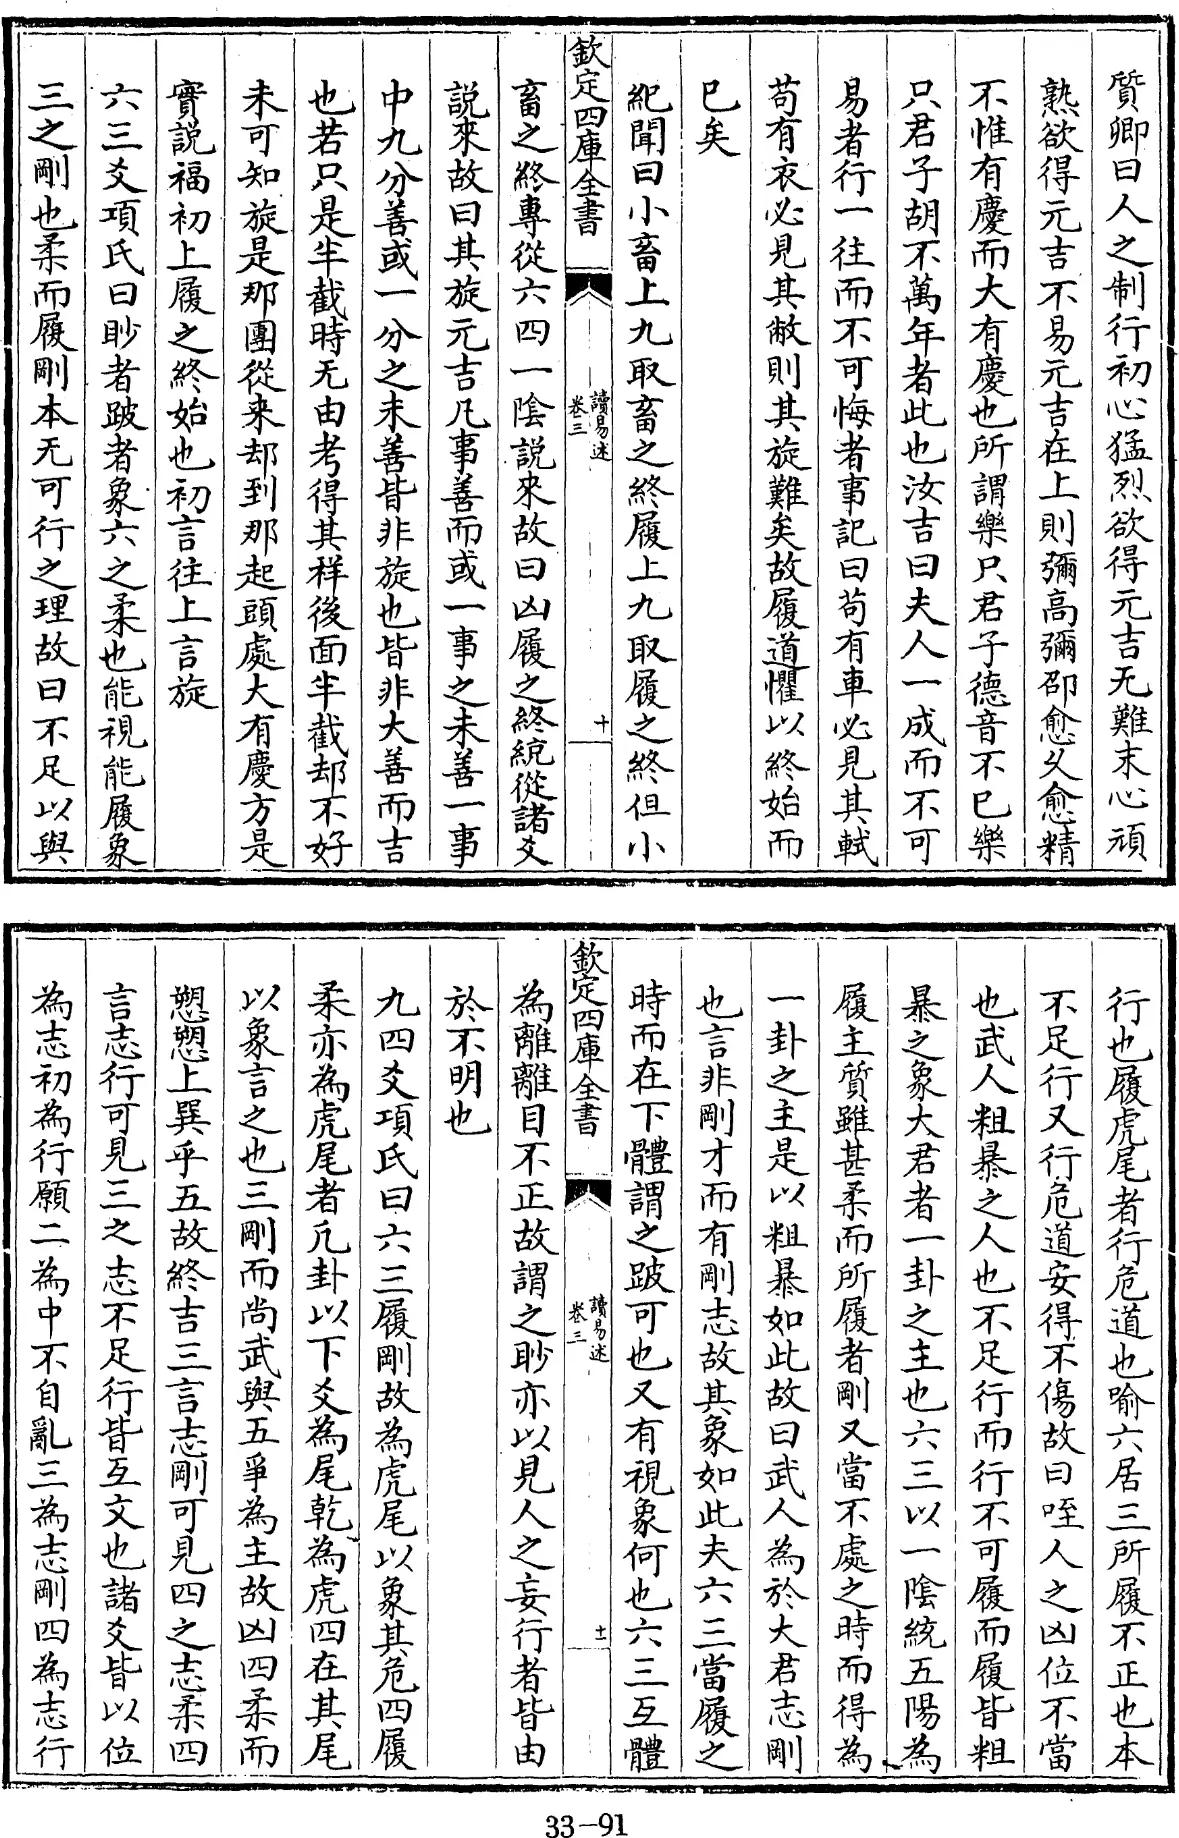 質卿曰人之制行初心猛烈欲得元吉无難末心頑
熟欲得元吉不易元吉在上則彌高彌卲愈乆愈精
不惟有慶而大有慶也所謂樂只君子德音不已樂
只君子胡不萬年者此也汝吉曰夫人一成而不可
易者行一往而不可悔者事記曰苟有車必見其軾
苟有衣必見其敝則其旋難矣故履道懼以終始而
已矣
紀聞曰小畜上九取畜之終履上九取履之終但小
欽定四庫全書
讀易述
卷三
十
畜之終專從六四一陰説來故曰凶履之終統從諸爻
説來故曰其旋元吉凡事善而或一事之未善一事
中九分善或一分之未善皆非旋也皆非大善而吉
也若只是半截時无由考得其祥後面半截却不好
未可知旋是那團從来却到那起頭處大有慶方是
實説福初上履之終始也初言往上言旋
六三爻項氏曰眇者跛者象六之柔也能視能履象
三之剛也柔而履剛本无可行之理故曰不足以與
行也履虎尾者行危道也喻六居三所履不正也本
不足行又行危道安得不傷故曰咥人之凶位不當
也武人粗暴之人也不足行而行不可履而履皆粗
暴之象大君者一卦之主也六三以一陰統五陽為
履主質雖甚柔而所履者剛又當不處之時而得為
一卦之主是以粗暴如此故曰武人為於大君志剛
也言非剛才而有剛志故其象如此夫六三當履之
時而在下體謂之跛可也又有視象何也六三互體
欽定四庫全書
讀易述
卷三
十一
為離離目不正故謂之眇亦以見人之妄行者皆由
於不明也
九四爻項氏曰六三履剛故為虎尾以象其危四履
柔亦為虎尾者凡卦以下爻為尾乾為虎四在其尾
以象言之也三剛而尚武與五爭為主故凶四柔而
愬愬上巽乎五故終吉三言志剛可見四之志柔四
言志行可見三之志不足行皆互文也諸爻皆以位
為志初為行願二為中不自亂三為志剛四為志行
33-91